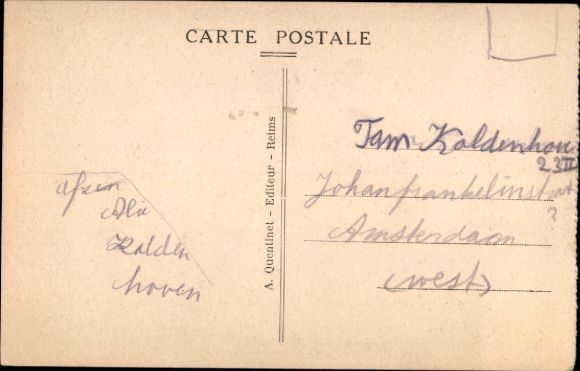 CARTE POSTALE
A. Quentinet - Editeur - Reims
Afsen
Alie
Kolden
hoven
Fam Koldenhov
23 III
Johanfrankelinstraat
?
Amsterdam
(West)